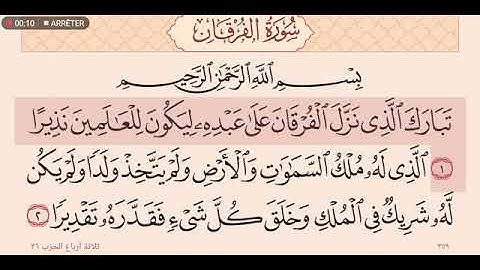 00:10 ■ ARRÊTER
سُورَةُ الْفُرْقَانِ
بِسْمِ اللَّهِ الرَّحْمَٰنِ الرَّحِيمِ
تَبَارَكَ الَّذِي نَزَّلَ الْفُرْقَانَ عَلَىٰ عَبْدِهِ لِيَكُونَ لِلْعَالَمِينَ نَذِيرًا
١ الَّذِي لَهُ مُلْكُ السَّمَٰوَاتِ وَالْأَرْضِ وَلَمْ يَتَّخِذْ وَلَدًا وَلَمْ يَكُن
لَّهُ شَرِيكٌ فِي الْمُلْكِ وَخَلَقَ كُلَّ شَيْءٍ فَقَدَّرَهُ تَقْدِيرًا ٢
٣٥٩ ثلاثة أرباع الحزب ٣٦